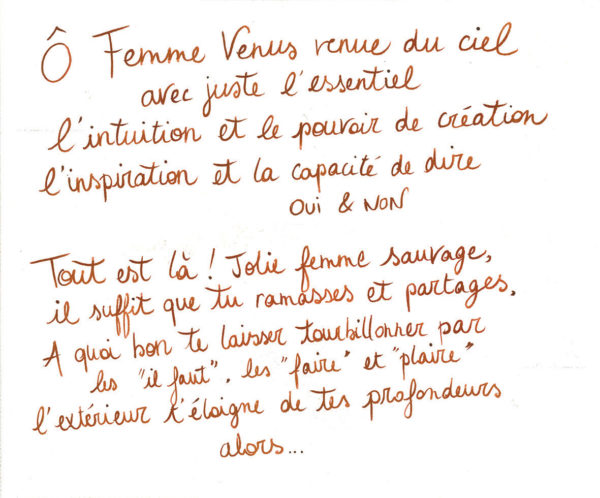 Ô Femme Venus venue du ciel
avec juste l'essentiel
l'intuition et le pouvoir de création
l'inspiration et la capacité de dire
OUI & NON
Tout est là ! Jolie femme sauvage,
il suffit que tu ramasses et partages,
A quoi bon te laisser tourbillonner par
les "il faut", les "faire" et "plaire"
l'extérieur t'éloigne de tes profondeurs
alors...